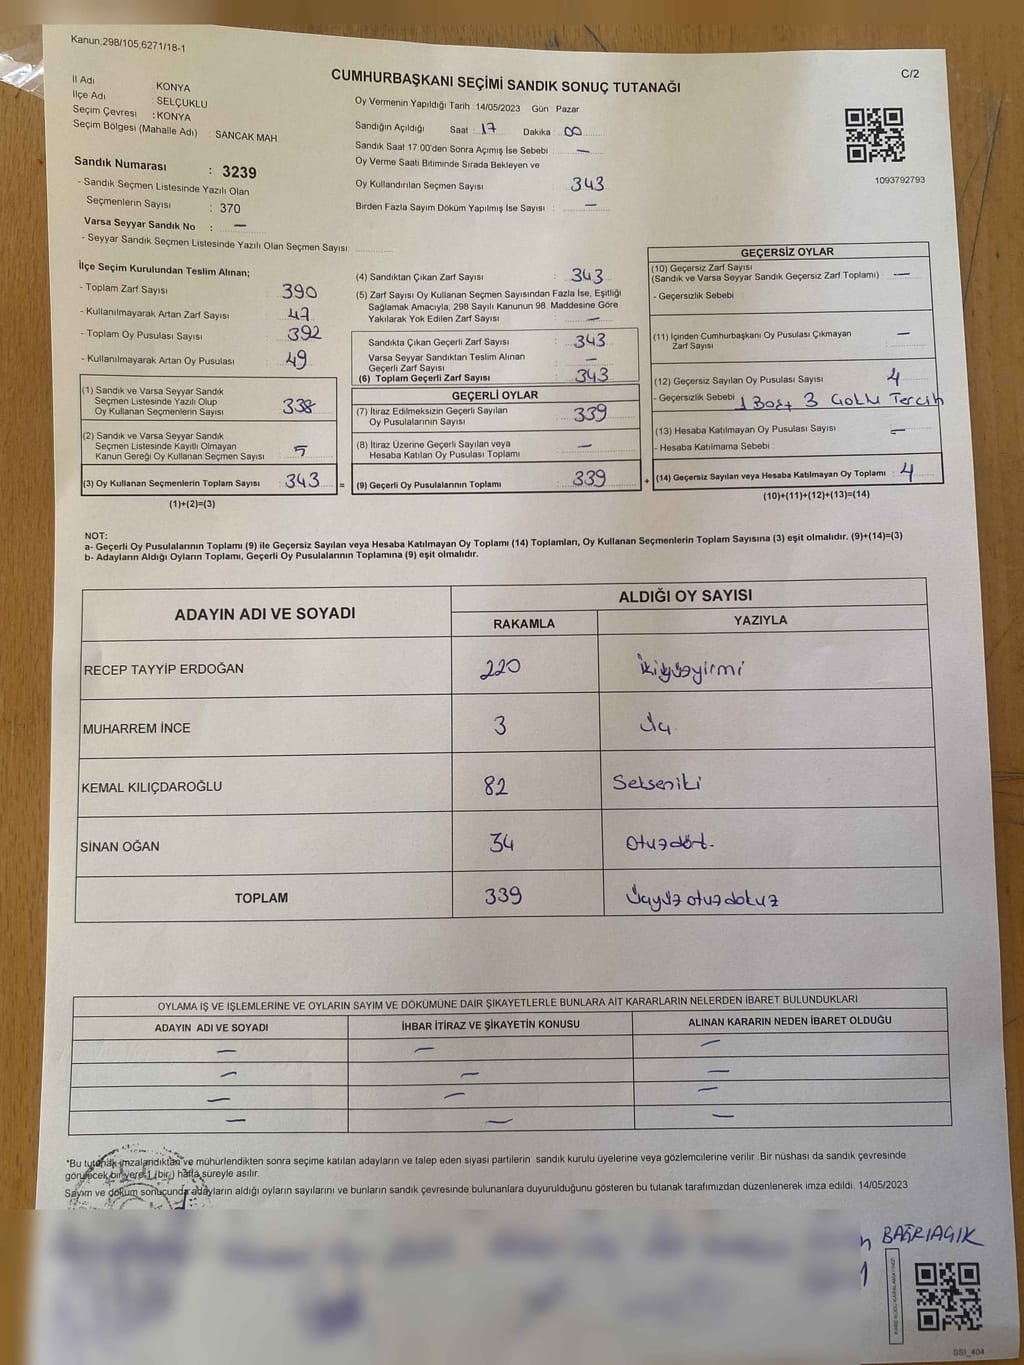 Kanun;298/105,6271/18-1
C/2
CUMHURBAŞKANI SEÇİMİ SANDIK SONUÇ TUTANAĞI
İl Adı : KONYA
İlçe Adı : SELÇUKLU
Seçim Çevresi : KONYA
Seçim Bölgesi (Mahalle Adı) : SANCAK MAH
Sandık Numarası : 3239
- Sandık Seçmen Listesinde Yazılı Olan
Seçmenlerin Sayısı : 370
Varsa Seyyar Sandık No : —
- Seyyar Sandık Seçmen Listesinde Yazılı Olan Seçmen Sayısı
Oy Vermenin Yapıldığı Tarih : 14/05/2023 Gün : Pazar
Sandığın Açıldığı Saat : 17 Dakika : 00
Sandık Saat 17:00'den Sonra Açımış İse Sebebi : —
Oy Verme Saati Bitiminde Sırada Bekleyen ve
Oy Kullandırılan Seçmen Sayısı : 343
Birden Fazla Sayım Döküm Yapılmış İse Sayısı : —
1093792793
İlçe Seçim Kurulundan Teslim Alınan;
- Toplam Zarf Sayısı : 390
- Kullanılmayarak Artan Zarf Sayısı : 47
- Toplam Oy Pusulası Sayısı : 392
- Kullanılmayarak Artan Oy Pusulası : 49
(1) Sandık ve Varsa Seyyar Sandık
Seçmen Listesinde Yazılı Olup
Oy Kullanan Seçmenlerin Sayısı : 338
(2) Sandık ve Varsa Seyyar Sandık
Seçmen Listesinde Kayıtlı Olmayan
Kanun Gereği Oy Kullanan Seçmen Sayısı : 5
(3) Oy Kullanan Seçmenlerin Toplam Sayısı : 343 =
(1)+(2)=(3)
(4) Sandıktan Çıkan Zarf Sayısı : 343
(5) Zarf Sayısı Oy Kullanan Seçmen Sayısından Fazla İse, Eşitliği
Sağlamak Amacıyla, 298 Sayılı Kanunun 98. Maddesine Göre
Yakılarak Yok Edilen Zarf Sayısı : —
Sandıkta Çıkan Geçerli Zarf Sayısı : 343
Varsa Seyyar Sandıktan Teslim Alınan
Geçerli Zarf Sayısı : —
(6) Toplam Geçerli Zarf Sayısı : 343
GEÇERLİ OYLAR
(7) İtiraz Edilmeksizin Geçerli Sayılan
Oy Pusulalarının Sayısı : 339
(8) İtiraz Üzerine Geçerli Sayılan veya
Hesaba Katılan Oy Pusulası Toplamı : —
(9) Geçerli Oy Pusulalarının Toplamı : 339 +
GEÇERSİZ OYLAR
(10) Geçersiz Zarf Sayısı
(Sandık ve Varsa Seyyar Sandık Geçersiz Zarf Toplamı) : —
- Geçersizlik Sebebi :
(11) İçinden Cumhurbaşkanı Oy Pusulası Çıkmayan
Zarf Sayısı : —
(12) Geçersiz Sayılan Oy Pusulası Sayısı : 4
- Geçersizlik Sebebi : 1 Boş + 3 Çoklu Tercih
(13) Hesaba Katılmayan Oy Pusulası Sayısı : —
- Hesaba Katılmama Sebebi :
(14) Geçersiz Sayılan veya Hesaba Katılmayan Oy Toplamı : 4
(10)+(11)+(12)+(13)=(14)
NOT:
a- Geçerli Oy Pusulalarının Toplamı (9) ile Geçersiz Sayılan veya Hesaba Katılmayan Oy Toplamı (14) Toplamları, Oy Kullanan Seçmenlerin Toplam Sayısına (3) eşit olmalıdır. (9)+(14)=(3)
b- Adayların Aldığı Oyların Toplamı, Geçerli Oy Pusulalarının Toplamına (9) eşit olmalıdır.
ADAYIN ADI VE SOYADI ALDIĞI OY SAYISI
RAKAMLA YAZIYLA
RECEP TAYYİP ERDOĞAN 220 İkiyüzyirmi
MUHARREM İNCE 3 Üç
KEMAL KILIÇDAROĞLU 82 Sekseniki
SİNAN OĞAN 34 Otuzdört.
TOPLAM 339 Üçyüz otuzdokuz
OYLAMA İŞ VE İŞLEMLERİNE VE OYLARIN SAYIM VE DÖKÜMÜNE DAİR ŞİKAYETLERLE BUNLARA AİT KARARLARIN NELERDEN İBARET BULUNDUKLARI
ADAYIN ADI VE SOYADI İHBAR İTİRAZ VE ŞİKAYETİN KONUSU ALINAN KARARIN NEDEN İBARET OLDUĞU
— — —
— — —
— — —
— — —
*Bu tutanak imzalandıktan ve mühürlendikten sonra seçime katılan adayların ve talep eden siyasi partilerin sandık kurulu üyelerine veya gözlemcilerine verilir. Bir nüshası da sandık çevresinde
görülecek bir yere 1 (bir) hafta süreyle asılır.
Sayım ve döküm sonucunda adayların aldığı oyların sayılarını ve bunların sandık çevresinde bulunanlara duyurulduğunu gösteren bu tutanak tarafımızdan düzenlenerek imza edildi. 14/05/2023
BAĞRIAÇIK
SSI_404